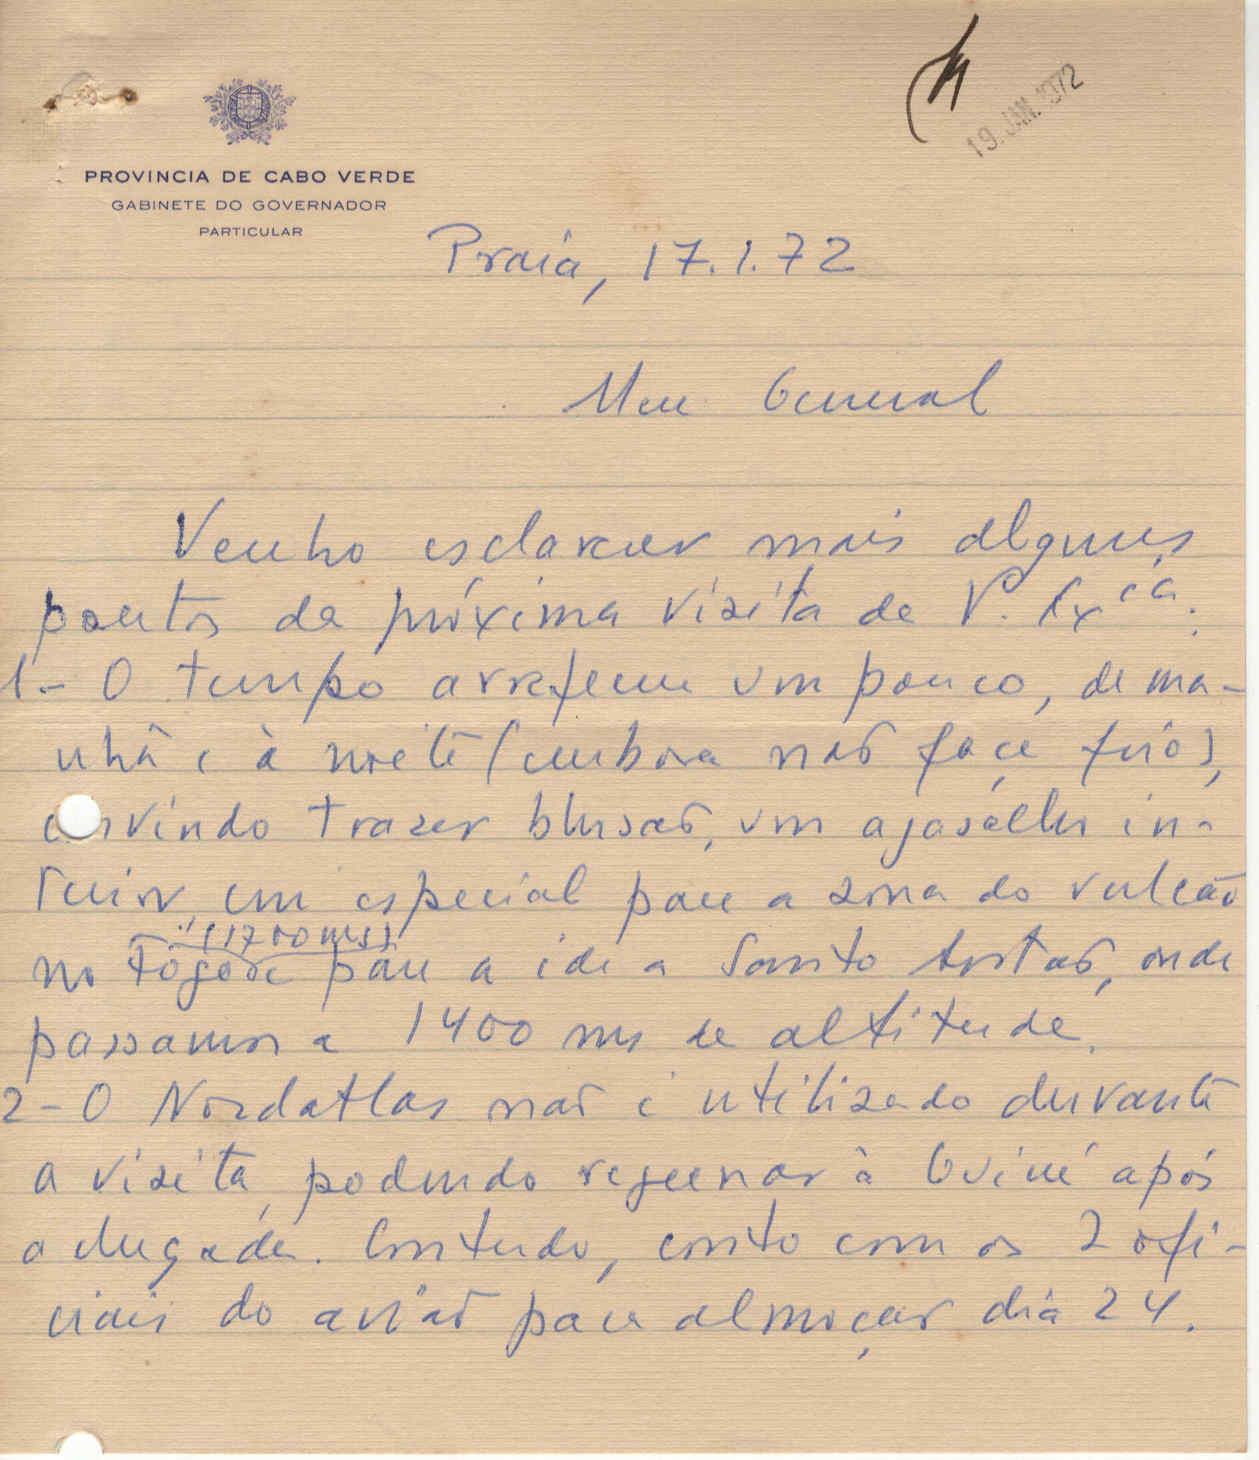 19. JAN. 1972
PROVINCIA DE CABO VERDE
GABINETE DO GOVERNADOR
PARTICULAR
Praia, 17.1.72
Meu General
Venho esclarecer mais alguns
pontos da próxima visita de V. Excia.
1- O tempo arrefeceu um pouco, de ma-
nhã e à noite (embora não faça frio),
convindo trazer blusão, um agasalho in-
terior, em especial para a zona do vulcão
(1700 ms)
no Fogo e para a ida a Santo Antão, onde
passamos a 1400 ms de altitude.
2- O Nordatlas não é utilizado durante
a visita, podendo regressar à Guiné após
a chegada. Contudo, conto com os 2 ofi-
ciais do avião para almoçar dia 24.